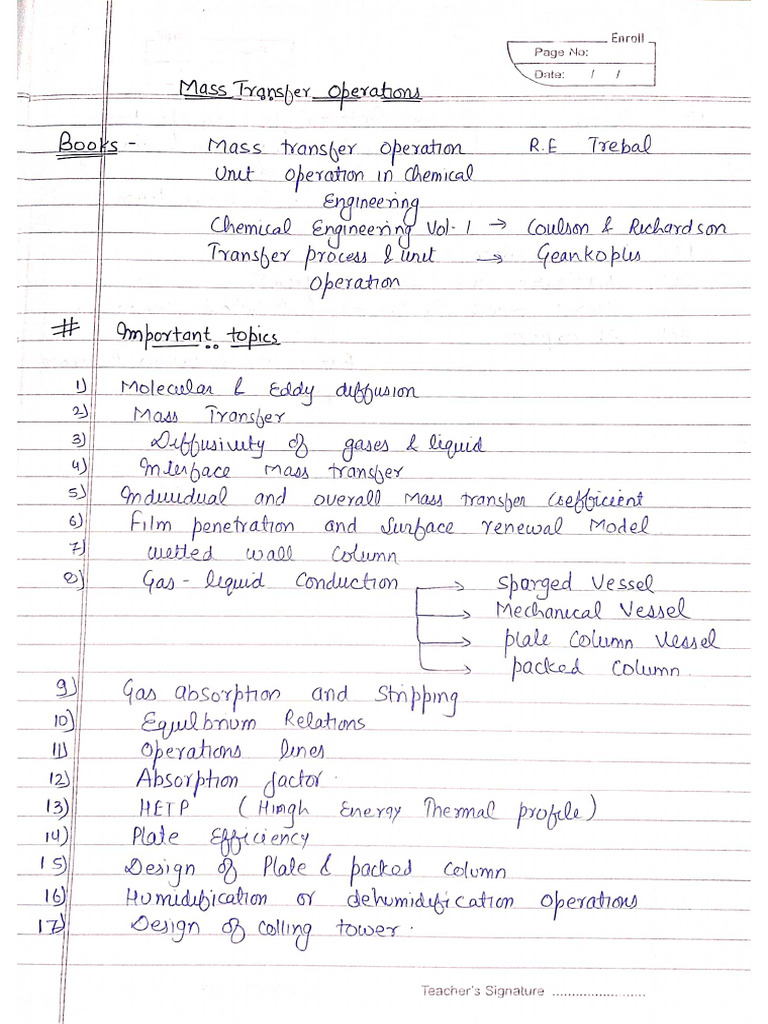 Enroll
Page No:
Date: / /
Mass Transfer Operations
Books - Mass transfer operation R.E Trebal
Unit operation in Chemical
Engineering
Chemical Engineering Vol-1 → Coulson & Richardson
Transfer process & unit → Geankoplus
Operation
# Important topics
1) Molecular & Eddy diffusion
2) Mass Transfer
3) Diffusivity of gases & liquid
4) Interface Mass transfer
5) Individual and overall Mass transfer Coefficient
6) Film penetration and Surface renewal Model
7) Wetted wall Column
8) Gas - liquid Conduction → Sparged Vessel
→ Mechanical Vessel
→ plate Column Vessel
→ packed Column
9) Gas absorption and Stripping
10) Equilbrium Relations
11) Operations lines
12) Absorption factor.
13) HETP (Hingh Energy Thermal profile)
14) Plate Efficiency
15) Design of Plate & packed Column
16) Humidification or dehumidification Operations
17) Design of Colling tower.
Teacher's Signature ........................